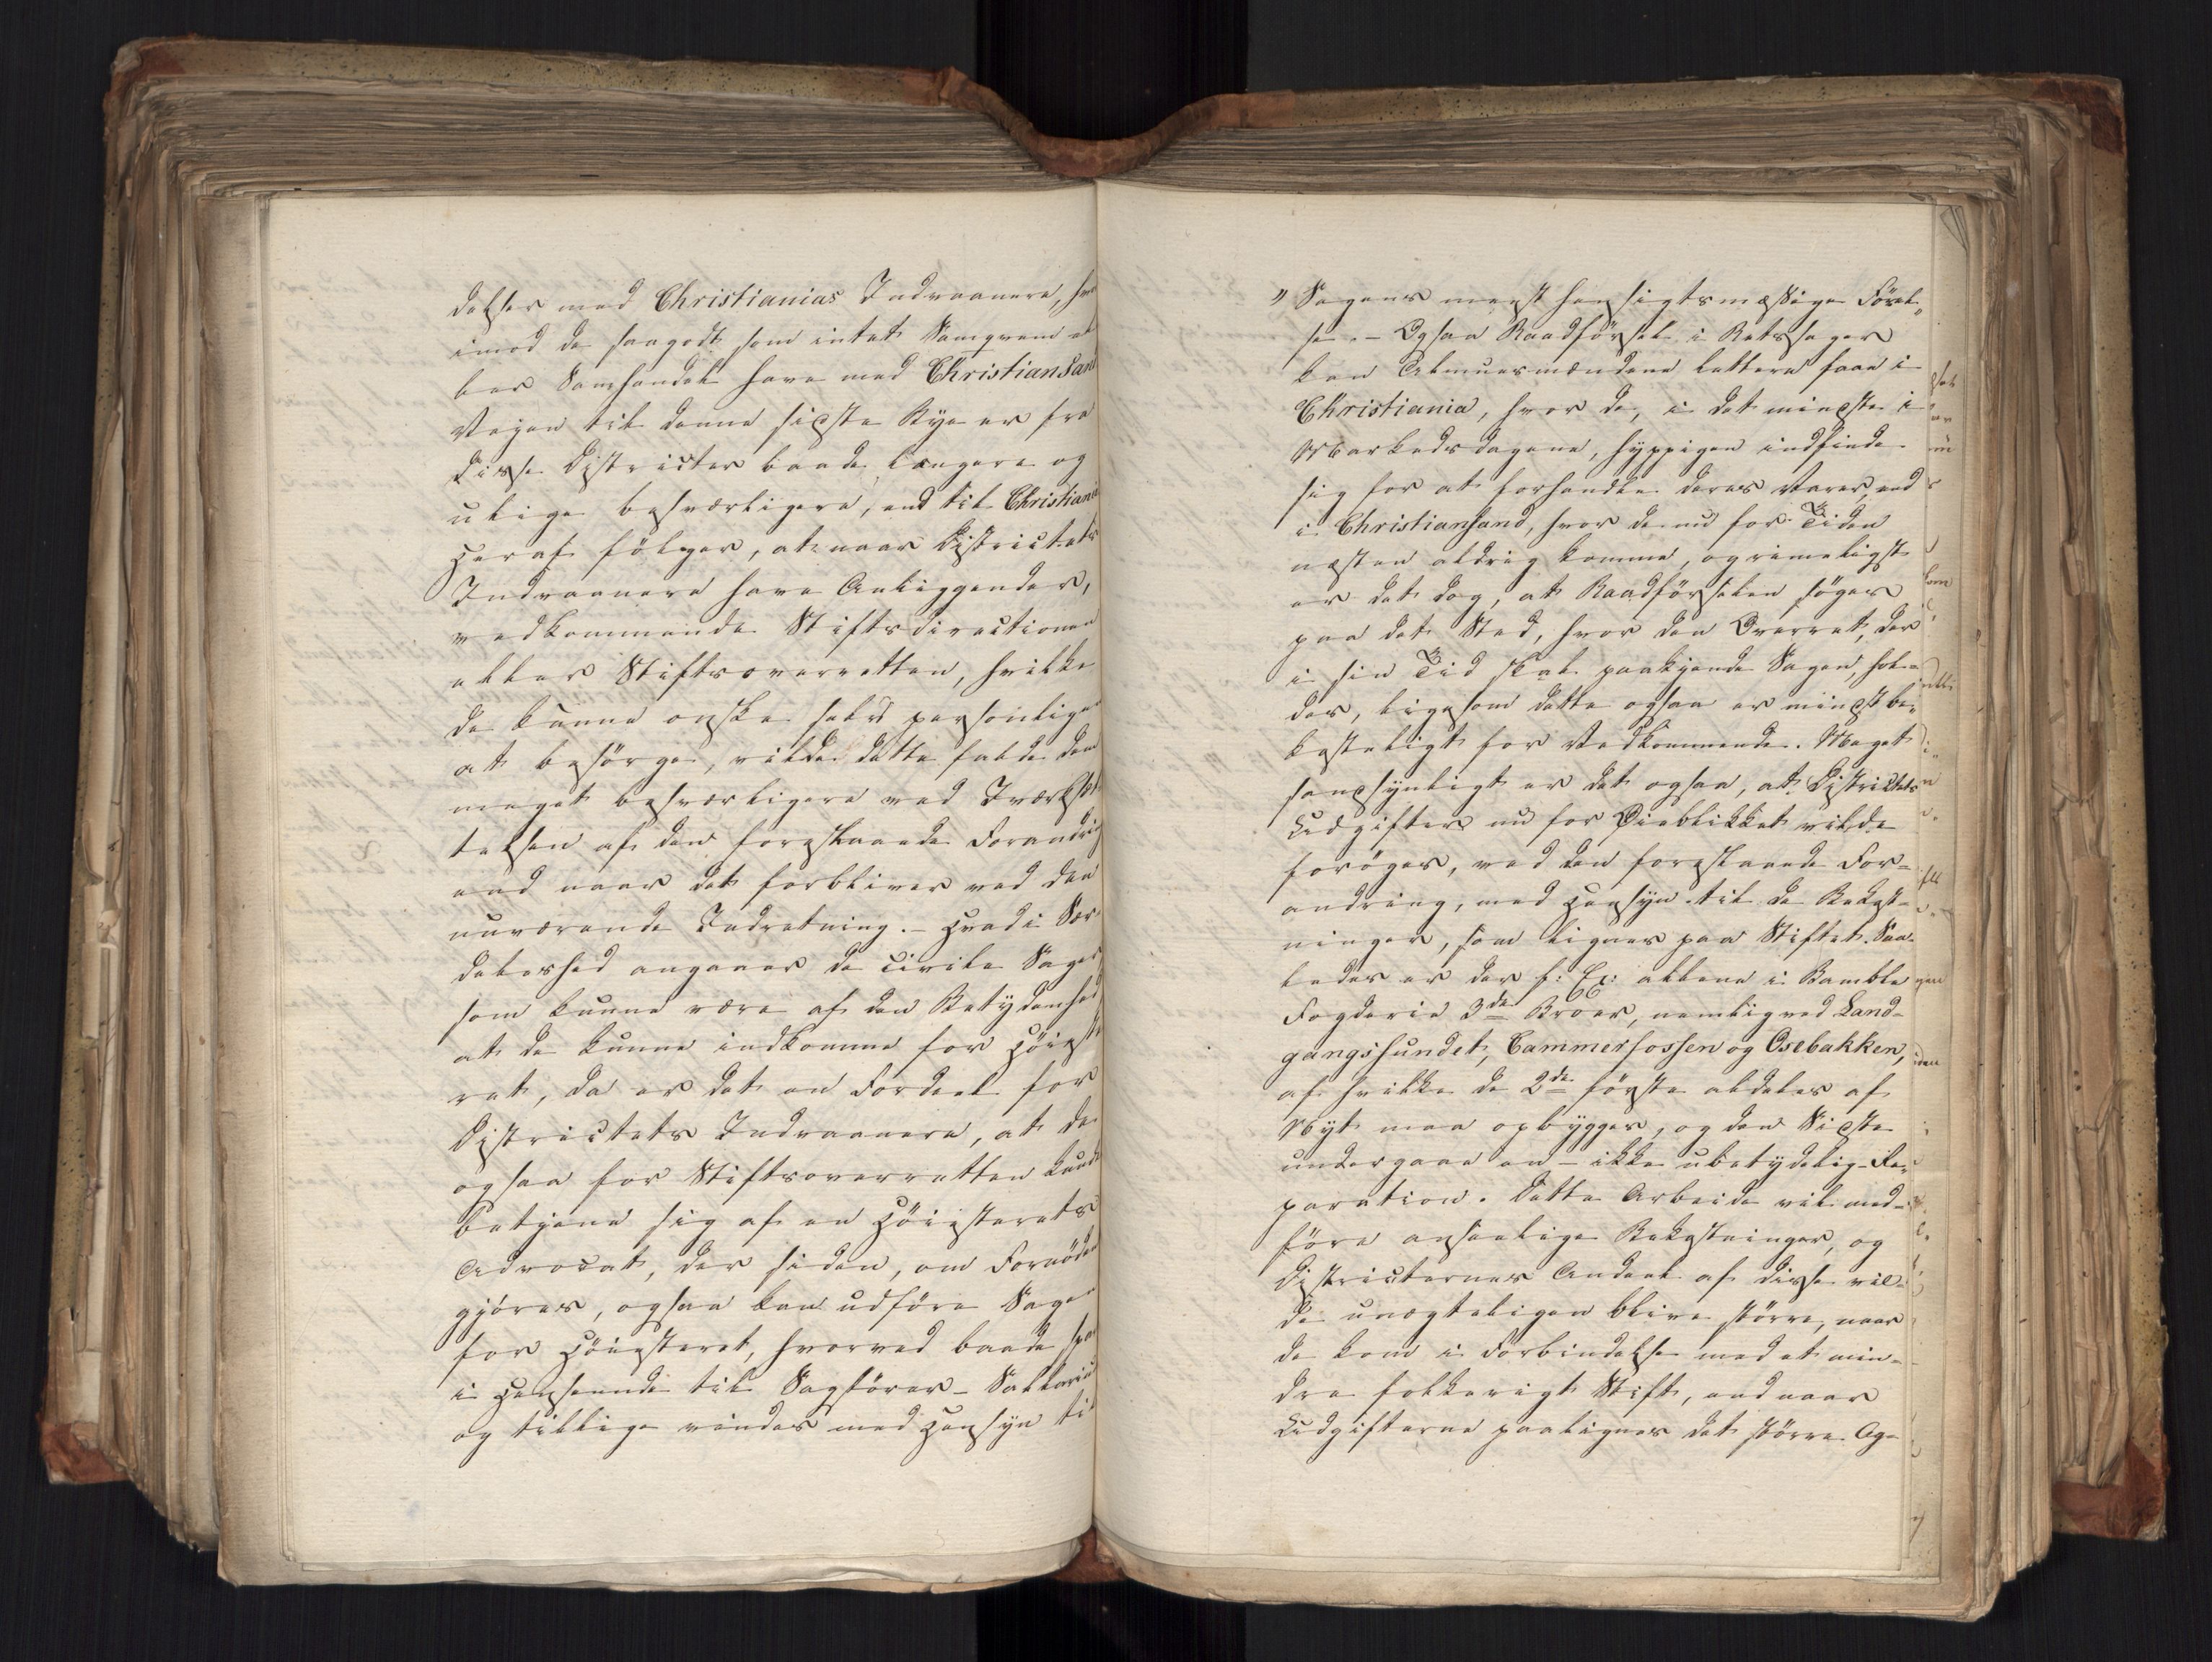 delser med Christianias Indvaanere, hvor
imod de saagodt som intet Samqvem el
ler Samhandel have med Christiansand
Vejen til denne sidste Bye er fra
disse Districter baade længere og
ulige besværligere, end til Christiania
Heraf følger, at naar Districtets
Indvaanere have Anliggender,
vedkommende Stiftsdirectionen
eller Stiftsoverretten, hvilke
de kunne ønske selv personligen
at besørge, vilde dette falde dem
meget besværligere ved Iværksæt
telsen af den foreslaaede Forandring
end naar det forbliver ved den
nuværende Indretning. – Hvad i Sær
deleshed angaaer de civile Sager
som kunne være af den Betydenhed
at de kunne indkomme for Høieste
ret, da er det en Fordeel for
Districtets Indvaanere, at de
ogsaa for Stiftsoverretten kunde
betjene sig af en Høiesterets
Advocat, der siden, om Fornøden
gjøres, ogsaa kan udføre Sagen
for Høiesteret, hvorved baade spa
i Henseende til Sagfører-Sallariu
og tillige vindes med Hensyn til
" Sagens meest hensigtsmæssige Førel„
se. – Ogsaa Raadførsel i Retssager
kan Almuesmændene lettere faae i
Christiania, hvor de, i det mindste i
Markedsdagene, hyppigen indfinde
sig for at forhandle deres Varer, end
i Christiansand, hvor de nu for Tiden
næsten aldrig komme, og rimeligst
er det dog, at Raadførselen søges
paa det Sted, hvor den Overret, der
i sin Tid skal paakjende Sagen, hol-
des, ligesom dette ogsaa er mindst be„
kosteligt for Vedkommende. Meget
sandsynligt er det ogsaa, at Districtets
Udgifter nu for Øieblikket vilde
forøges, ved den foreslaaede For-
andring, med Hensyn til de Bekost-
ninger, som lignes paa Stiftet. Saa-
ledes er der f: Ex: allene i Bamble
Fogderie 3de Broer, nemlig ved Land-
gangssundet, Cammerfossen og Osebakken,
af hvilke de 2de første aldeles af
Nyt maa opbygges, og den Sidste
undergaae en – ikke ubetydelig – Re„
paration. Dette Arbeide vil med-
føre anseelige Bekostninger, og
Districternes Andeel af disse vil-
de unægteligen blive større, naar
de kom i Forbindelse med et min-
dre folkerigt Stift, end naar
Udgifterne paalignes det større Ag-